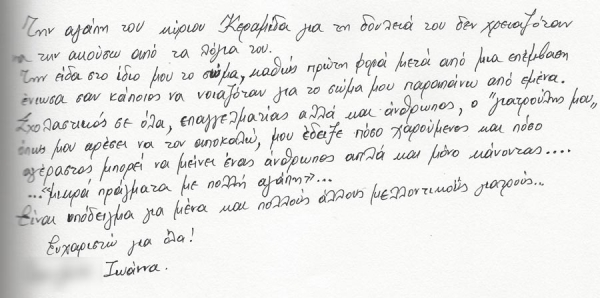 Την αγάπη του κύριου Κεραμίδα για τη δουλειά του δεν χρειαζόταν
να την ακούσω από τα λόγια του.
Την είδα στο ίδιο μου το σώμα, καθώς πρώτη φορά μετά από μια επέμβαση
ένιωσα σαν κάποιος να νοιαζόταν για το σώμα μου παραπάνω από εμένα.
Σχολαστικός σε όλα, επαγγελματίας αλλά και άνθρωπος, ο "γιατρούλης μου",
όπως μου αρέσει να τον αποκαλώ, μου έδειξε πόσο χαρούμενος και πόσο
αγέραστος μπορεί να μείνει ένας άνθρωπος απλά και μόνο κάνοντας....
..."μικρά πράγματα με πολλή αγάπη"...
Είναι υπόδειγμα για μένα και πολλούς άλλους μελλοντικούς γιατρούς...
Ευχαριστώ για όλα!
Ιωάννα.